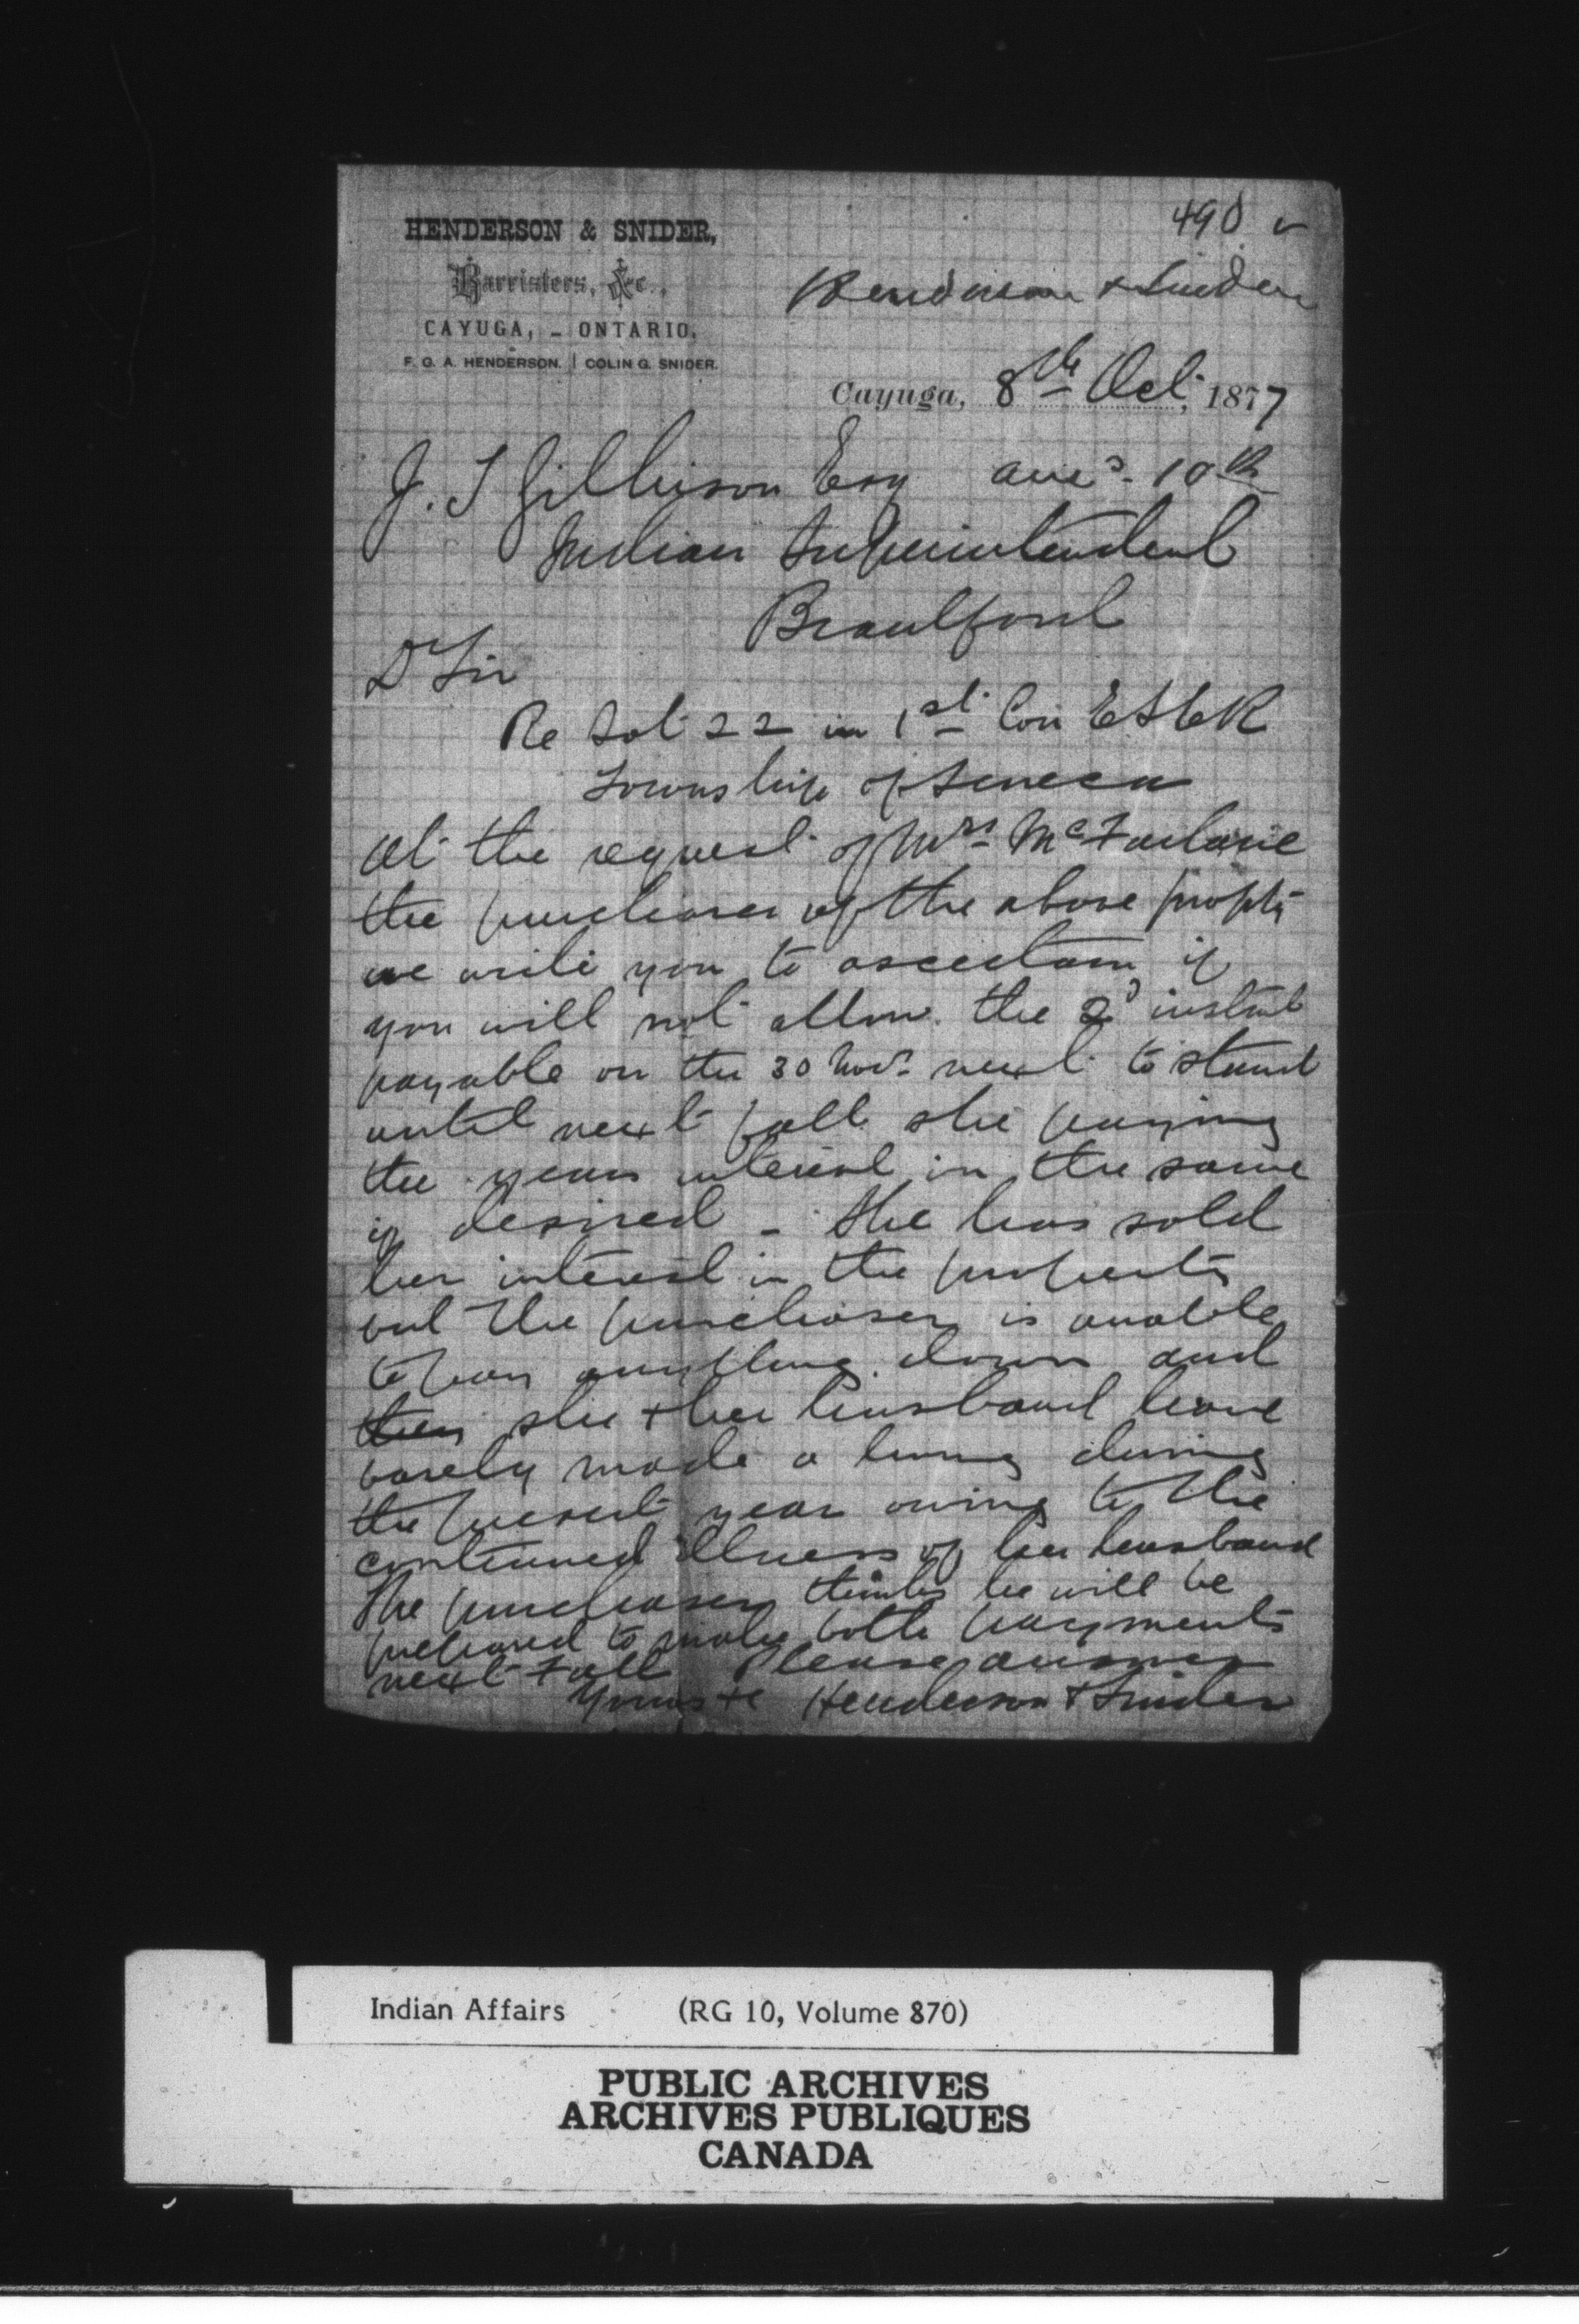 490
HENDERSON & SNIDER,
Barristers, &c.,
CAYUGA, - ONTARIO.
F. O. A. HENDERSON. | COLIN G. SNIDER.
Henderson & Snider
Cayuga, 8th Oct. 1877
J. T Gilkison Esq ansd. 10th
Indian Superintendent
Brantford
D Sir
Re Lot 22 in 1st Con E S P R
Township of Seneca
At the request of Mrs McFarlane
the purchaser of the above propty
we write you to ascertain if
you will not allow the 2d instmt
payable on the 30 Novr next to stand
until next fall she paying
the years interest on the same
if desired - She has sold
her interest in the property
but the purchaser is unable
to pay anything down and
they she & her husband have
barely made a living during
the present year owing to the
continued illness of her husband
The purchaser thinks he will be
prepared to make both payments
next Fall Please answer
Yours &c Henderson & Snider
Indian Affairs (RG 10, Volume 870)
PUBLIC ARCHIVES
ARCHIVES PUBLIQUES
CANADA